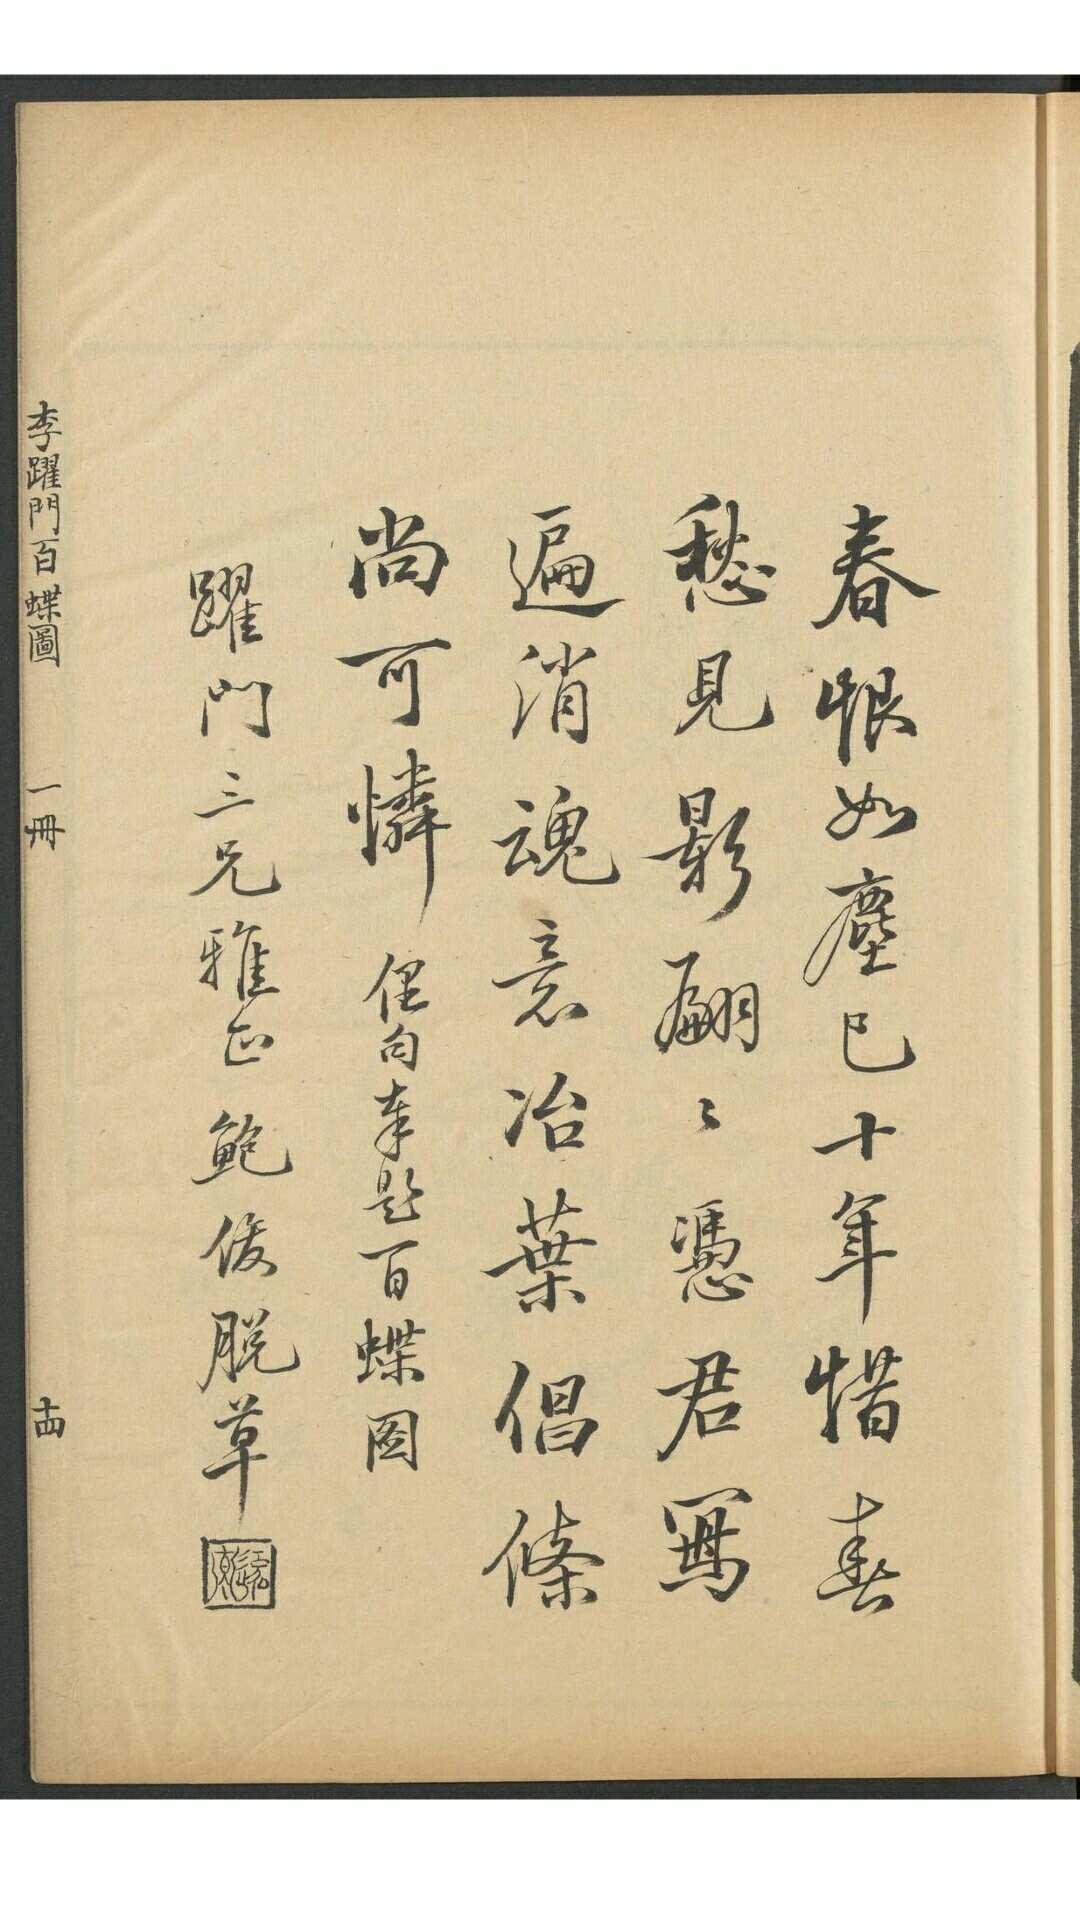 春恨如塵已十年惜春
愁見影翩〻憑君寫
遍消魂意冶葉倡條
尚可憐 俚句奉題百蝶图
躍門三兄雅正 鮑俊脱草
李躍門百蝶圖 一冊 十四